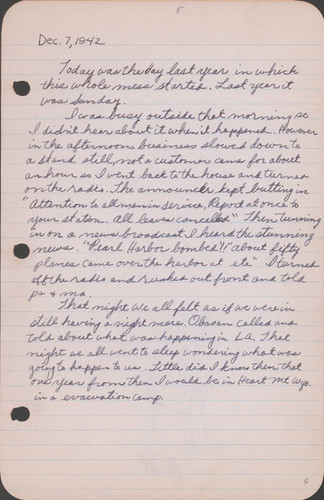 5
Dec. 7, 1942
Today was the day last year in which
this whole mess started. Last year it
was Sunday.
I was busy outside that morning so
I didn't hear about it when it happened. However
in the afternoon business slowed down to
a stand still, not a customer came for about
an hour so I went back to the house and turned
on the radio. The announcer kept butting in
"Attention to all men in service, Report at once to
your station. All leaves cancelled" Then tunning
in on a news broadcast I heard the stunning
news. "Pearl Harbor bombed!!" about fifty
planes came over the harbor at etc" I turned
off the radio and rushed out front and told
pa & ma.
That night we all felt as if we were in
still having a night mare. Obasan called and
told about what was happening in L.A. That
night we all went to sleep wondering what was
going to happen to us. Little did I know then that
one year from then I would be in Heart Mt. Wyo.
in a evacuation camp.
5